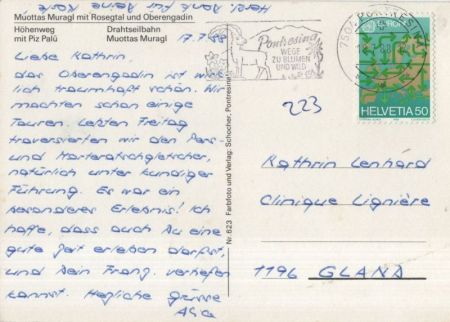 Herzl. Dank für Deine
Karte
Muottas Muragl mit Rosegtal und Oberengadin
Höhenweg
mit Piz Palü
Drahtseilbahn
Muottas Muragl
17.7.88
Liebe Kathrin,
das Oberengadin ist wirk-
lich traumhaft schön. Wir
machten schon einige
Touren. Letzten Freitag
traversierten wir den Pers-
und Morteratschgletscher,
natürlich unter kundiger
Führung. Es war ein
besonderes Erlebnis! Ich
hoffe, dass auch Du eine
gute Zeit erleben darfst,
und Dein Franz. vertiefen
kannst. Herzliche Grüsse
Nr. 623 Farbfoto und Verlag: Schocher, Pontresina
Pontresina
WEGE
ZU BLUMEN
UND WILD
7504 PONTRESINA
EUROPA
HELVETIA 50
223
Kathrin Lenhard
Clinique Lignière
1196 GLAND